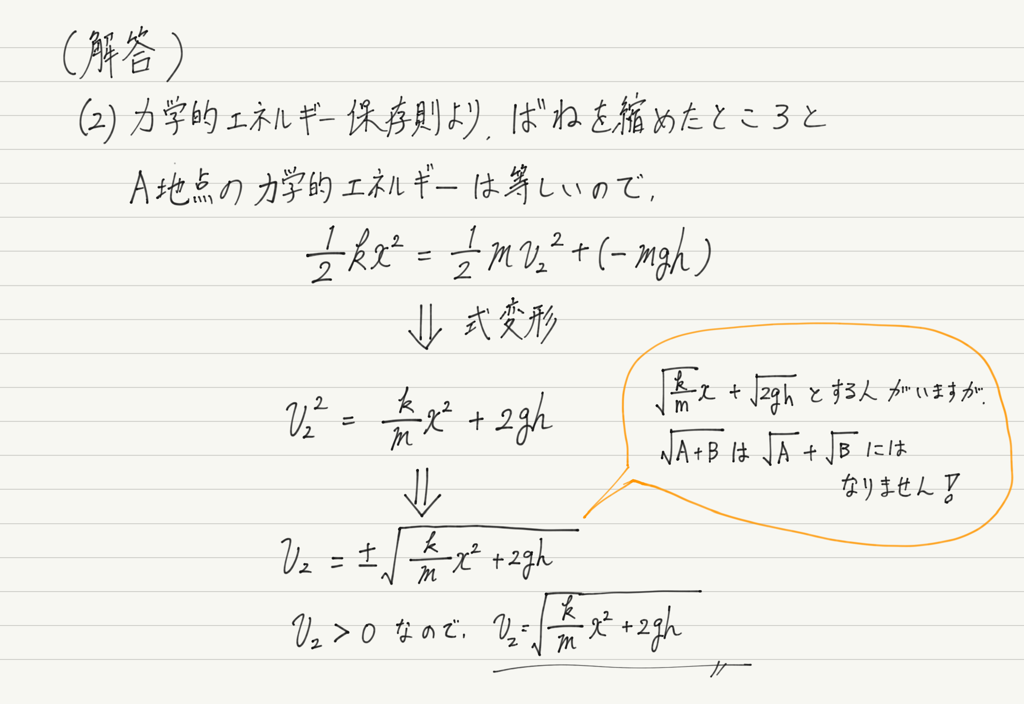 (解答)
(2) 力学的エネルギー保存則より、ばねを縮めたところと
A地点の力学的エネルギーは等しいので、
1/2 kx² = 1/2 mv₂² + (-mgh)
⇓ 式変形
v₂² = k/m x² + 2gh
⇓
v₂ = ±√(k/m x² + 2gh)
v₂ > 0 なので、 v₂ = √(k/m x² + 2gh)
√(k/m) x + √(2gh) とする人がいますが、
√(A+B) は √A + √B には
なりません!